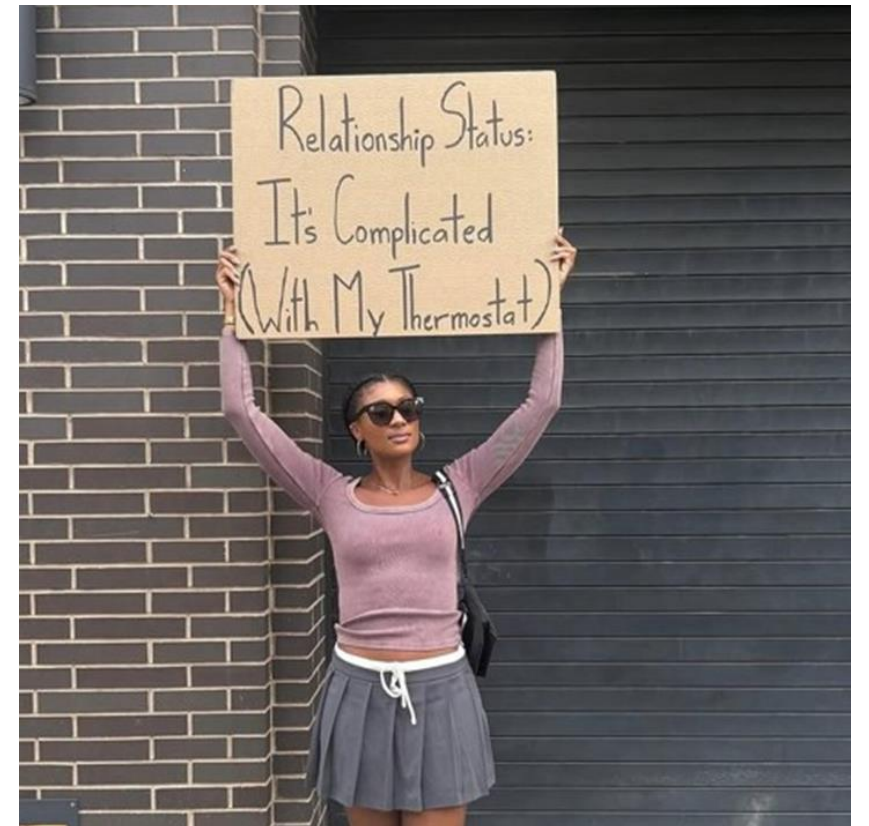 Relationship Status:
It's Complicated
(With My Thermostat)